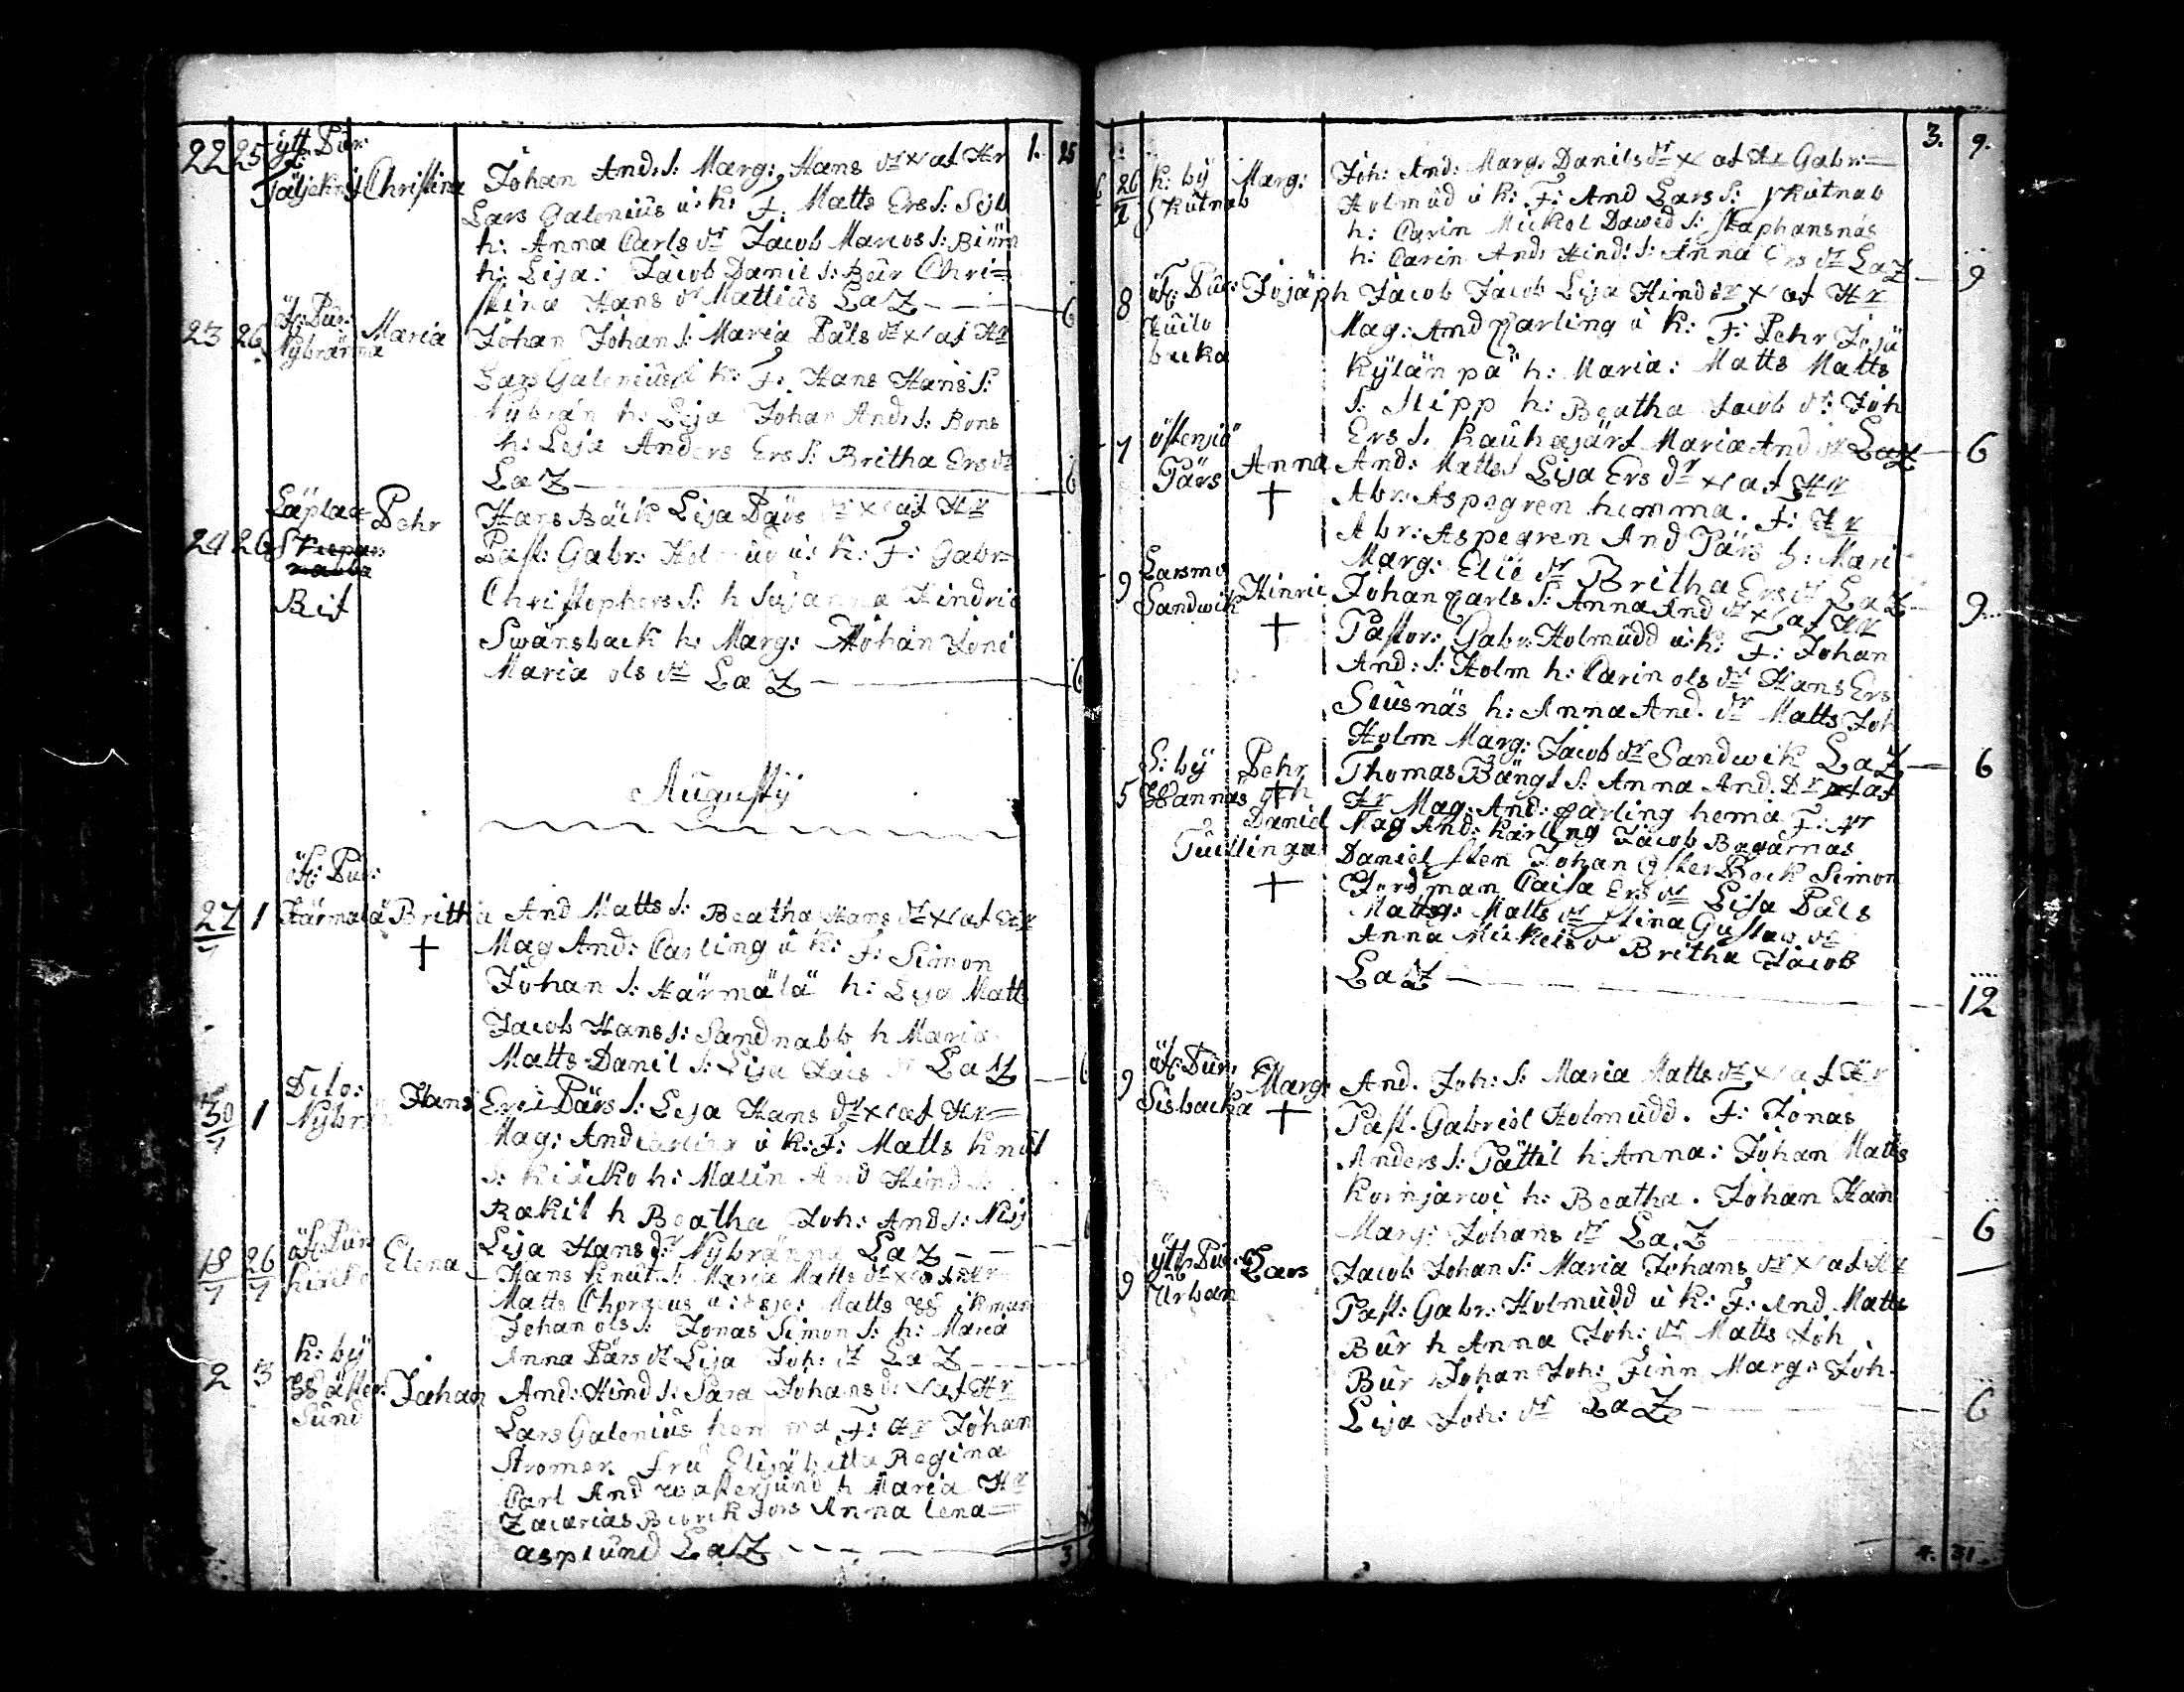 1. 25
22 25 ytt. Pur: Christina Johan And: S: Marg: Hans dr x af Hr
Täljeknif
Lars Galenius i K: F: Matts Ers S:
h: Anna Carls dr Jacob Marcos S: Biörn
h: Lisa: Jacob Danil S: Bûr Chri=
stina Hans dr Mattiûs LaZ — 6
öf: Pur:
23 26 Nÿbränna Maria Johan Johan S: Maria Påls dr x af Hr
Lars Galenius i K: F: Hans Hans S:
Nÿbrän h: Lisa Johan And: S: Bons
h: Lisa Anders Ers S: Britha Ers dr
LaZ — 6
Läplax Pehr Hans Bäck Lisa Pärs dr x af Hr
24 26 Past: Gabr: i K: F: Gabr=
Rif Christophers S: h Susanna Hindric
Swänsback h: Marg: Johan Jone
Maria ols dr LaZ — 6
Augustÿ
öf: Pur:
27/7 1 Härmälä Britha And Matts S: Beatha Hans dr x af Hr
+ Mag And: Carling i K: F: Simon
Johan S: Härmälä h: Lisa Matts
Jacob Hans S: Sandnabb h Maria
Matts Danil S: Lisa LaZ — 6
Dito:
30/7 1 Hans Eric Pärs S: Lisa Hans dr x af Hr=
Mag: And Carling i K: F: Matts Knût
S: Kisiko h: Malin And Hind S:
Rakil h Beatha Joh: And S:
Lisa Hans dr Nÿbränna LaZ —
18/7 26/7 öf: Pur Elena Hans Knût S: Maria Matts dr x af Hr
Matts Chorgeus Matts
Johan ols S: Jonas Simon S: h: Maria
Anna Pärs dr Lisa Joh: dr LaZ —
K: bÿ
2 3 Wäster: Johan And: Hind S: Sara Johans d: x af Hr
Sund Lars Galenius hemma F: Hr Johan
Stromer frû Elisabetta Regina
Carl And wastersund h Maria Hr
Zacarias Biörck Anna lena=
asplund LaZ — 3
3. 9.
6 26/7 K: bÿ Marg: Joh: And: Marg: Danils dr x af Hr Gabr:
Skûtnab Holmûd i K: F: And Lars S: Skûtnab
h: Carin Mickel Dawid S: Staphansnäs
h: Carin And: Hind: S: Anna Ers dr LaZ — 9
8 öf: Pur: Josäph Jacob Jacob Lisa Hinds dr x af Hr
Mag: And Carling i K: F: Pehr Josä
backa Kÿlänpä h: Maria: Matts Matts
S: Slipp h: Beatha Jacob dr: Joh
Ers S. Kauhajärf Maria And dr LaZ — 6
7 östensiö
Pärs Anna And: Matts S Lisa Ers dr x af Hr
+ Abr: Aspegren hemma. F: Hr
Abr: Aspegren And Pärs h: Mari
Marg: Elie dr Britha Ers dr LaZ — 9
9 Larsmo
Sandwik Hinric Johan Carls S: Anna And dr x af Hr
+ Pastor: Gabr: Holmûdd i K: F: Johan
And: S: Holm h: Carin ols dr Hans Ers
h: Anna And. dr Matts Joh
Holm Marg: Jacob dr Sandwik LaZ — 6
S: bÿ Pehr Thomas Bängt S: Anna And. Dr af
5 Wannäs och + Hr Mag: And: Carling hema F: Hr
Daniel Mag And: Karling Jacob Bagarnas
Tuillingar Daniel Sten Johan Öster Back Simon
+ Caisa Ers dr Lisa Påls
Matts: Matts dr Stina Gustaw dr
Anna Mickels dr Britha Jacob
LaZ — 12
9 öf: Pur: Marg: And. Joh: S: Maria Matts dr x af Hr
Sisbacka + Past. Gabriel Holmûdd. F: Jonas
Anders S: Pättil h: Anna: Johan Matts
Kornjärwi h: Beatha. Johan Han
Marg: Johans dr LaZ — 6
9 ÿtt: Pur: Lars Jacob Johan S: Maria Johans dr x af Hr
Urban Past: Gabr: Holmûdd i K: F: And Matts
Bûr h Anna Joh: dr Matts Joh
Bûr Johan Joh: Finn Marg: Joh.
Lisa Joh: dr LaZ — 6
4. 31